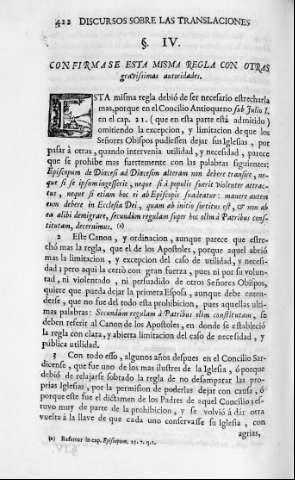 422 DISCURSOS SOBRE LAS TRANSLACIONES
§. IV.
CONFIRMASE ESTA MISMA REGLA CON OTRAS
gravissimas autoridades.
ESTA misma regla debió de ser necesario estrecharla
mas, porque en el Concilio Antioqueno sub Julio I.
en el cap. 21. (que en esta parte está admitido)
omitiendo la excepcion, y limitacion de que los
Señores Obispos pudiessen dejar sus Iglesias, por
pasar à otras, quando intervenia utilidad, y necesidad, parece
que se prohibe mas fuertemente con las palabras siguientes:
Episcopum de Diœcesi ad Diœcesim alteram non debere transire, ne-
que si se ipsum ingesserit, neque si à populis fuerit violenter attrac-
tus, neque si etiam hoc ei ab Episcopis suadeatur: manere autem
eum debere in Ecclesia Dei, quam ab initio sortitus est, & non ab
ea alibi demigrare, secundùm regulam super hoc olim à Patribus cons-
titutam, decrevimus. (a)
2 Este Canon, y ordinacion, aunque parece que estre-
chó mas la regla, que el de los Apostoles, porque aquel abrió
mas la limitacion, y excepcion del caso de utilidad, y necesi-
dad; pero aqui la cerró con gran fuerza, pues ni por su volun-
tad, ni violentado, ni persuadido de otros Señores Obispos,
quiere que pueda dejar la primera Esposa, aunque debe enten-
derse, que no fue del todo esta prohibicion, pues aquellas ulti-
mas palabras: Secundùm regulam à Patribus olim constitutam, se
deben referir al Canon de los Apostoles, en donde se estableció
la regla con clara, y abierta limitacion del caso de necesidad, y
publica utilidad.
3 Con todo esso, algunos años despues en el Concilio Sar-
dicense, que fue uno de los mas ilustres de la Iglesia, ó porque
debió de relajarse sobrado la regla de no desamparar las pro-
prias Iglesias, por la permision de poderlas dejar con causa, ó
porque este fue el dictamen de los Padres de aquel Concilio; es-
tuvo muy de parte de la prohibicion, y se volvió á dar otra
vuelta à la llave de que cada uno conservasse su Iglesia, con
agrias,
(a) Refertur in cap. Episcopum, 25. 7. q. 1.